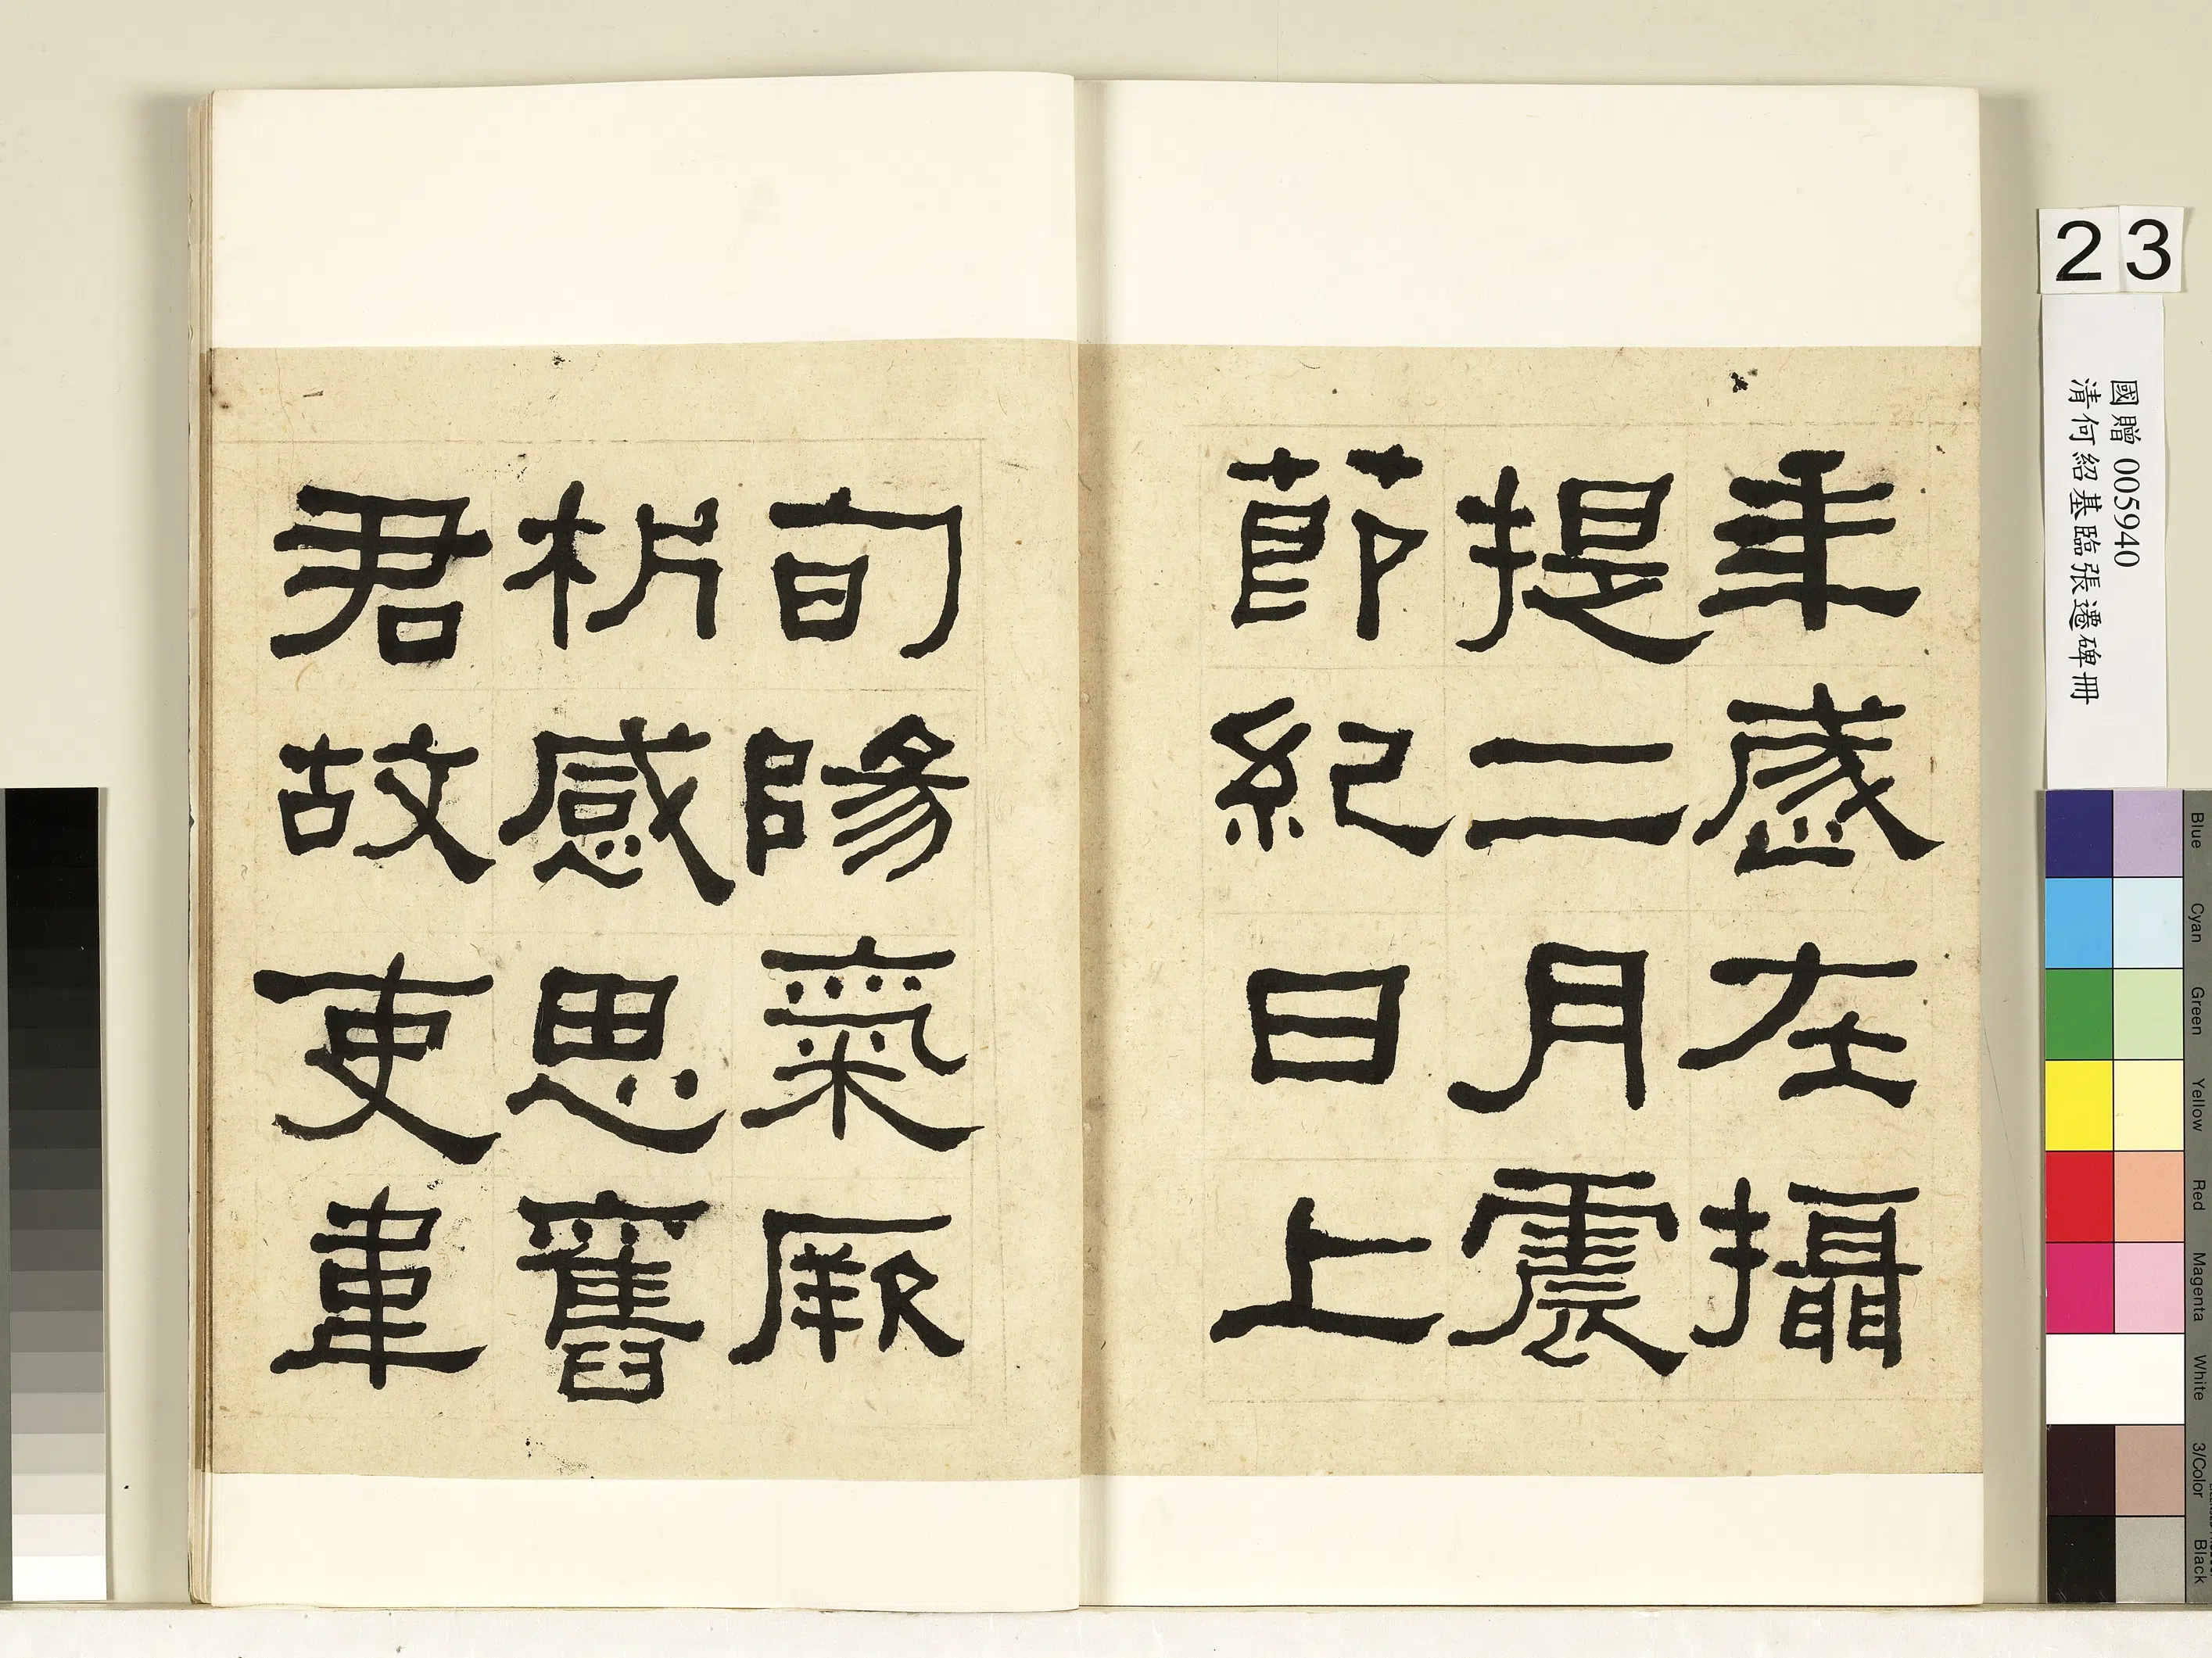 年歲在攝
提二月震
節紀日上
旬陽氣厥
析感思舊
君故吏韋
23
國贈 005940
清何紹基臨張遷碑冊
Blue
Cyan
Green
Yellow
Red
Magenta
White
3/Color
Black